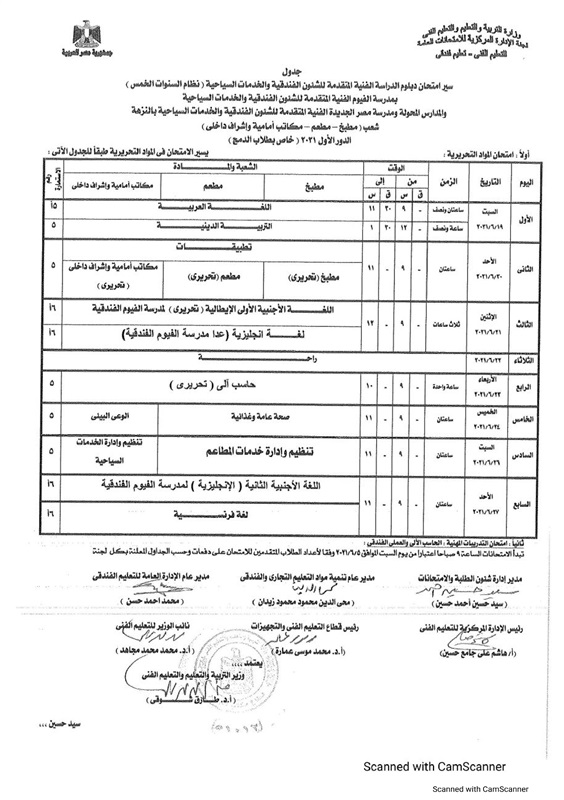 وزارة التربية والتعليم والتعليم الفنى
لجنة الإدارة المركزية للامتحانات العامة
للتعليم الفنى - تعليم فندقى
جمهورية مصر العربية
جدول
سير امتحان دبلوم الدراسة الفنية المتقدمة للشئون الفندقية والخدمات السياحية ( نظام السنوات الخمس )
بمدرسة الفيوم الفنية المتقدمة للشئون الفندقية والخدمات السياحية
والمدارس المحولة ومدرسة مصر الجديدة الفنية المتقدمة للشئون الفندقية والخدمات السياحية بالنزهة
شعب ( مطبخ – مطعم – مكاتب أمامية وإشراف داخلى )
الدور الأول ٢٠٢١ ( خاص بطلاب الدمج )
أولاً : امتحان المواد التحريرية : يسير الامتحان فى المواد التحريرية طبقاً للجدول الأتى :
اليوم التاريخ الزمن الوقت الشعبة والمـــادة رقم الاستمارة
من إلى مطبخ مطعم مكاتب أمامية وإشراف داخلى
ق س ق س
الأول السبت ٢٠٢١/٦/١٩ ساعتان ونصف - ٩ ٣٠ ١١ اللغـــة العربيـــة ١٥
ساعة ونصف - ١٢ ٣٠ ١ التربيـة الدينيـة ٥
الثانى الأحد ٢٠٢١/٦/٢٠ ساعتان - ٩ - ١١ تطبيقـــات ٥
مطبخ (تحريرى) مطعم (تحريرى) مكاتب أمامية وإشراف داخلى (تحريرى)
الثالث الإثنين ٢٠٢١/٦/٢١ ثلاث ساعات - ٩ - ١٢ اللغـــة الأجنبية الأولى الإيطالية ( تحريرى ) لمدرسة الفيوم الفندقية ١٦
لغـــة انجليزية (عدا مدرسة الفيوم الفندقية) ١٦
الثلاثاء ٢٠٢١/٦/٢٢ راحـــة
الرابع الأربعاء ٢٠٢١/٦/٢٣ ساعة واحدة - ٩ - ١٠ حاسب ألى ( تحريرى ) ٥
الخامس الخميس ٢٠٢١/٦/٢٤ ساعتان - ٩ - ١١ صحة عامة وغذائية الوعى البيئى ٥
السادس السبت ٢٠٢١/٦/٢٦ ساعتان - ٩ - ١١ تنظيم وإدارة خدمات المطاعم تنظيم وإدارة الخدمات السياحية ٥
السابع الأحد ٢٠٢١/٦/٢٧ ساعتان - ٩ - ١١ اللغة الأجنبية الثانية ( الإنجليزية ) لمدرسة الفيوم الفندقية ١٦
لغة فرنسـيـة ١٦
ثانياً : امتحان التدريبات المهنية : الحاسب الألى والعملى الفندقى :
تبدأ الامتحانات الساعة ٩ صباحا اعتبارا من يوم السبت الموافق ٢٠٢١/٦/٥ وفقا لأعداد الطلاب المتقدمين للامتحان على دفعات وحسب الجداول المعلنة بكل لجنة
مدير إدارة شئون الطلبة والامتحانات مدير عام تنمية مواد التعليم التجارى والفندقى مدير عام الإدارة العامة للتعليم الفندقى
( سيد حسين أحمد حسين ) ( محى الدين محمود محمود زيدان ) ( محمد أحمد حسن )
رئيس الإدارة المركزية للتعليم الفنى رئيس قطاع التعليم الفنى والتجهيزات نائب الوزير للتعليم الفنى
( أ/ هاشم على جامع حسين ) ( أ.د. محمد موسى عمارة ) ( أ.د. محمد محمد مجاهد )
يعتمد ،،،،
وزير التربية والتعليم والتعليم الفنى
( أ.د. طـارق شـوقى )
سيد حسين ،،،
Scanned with CamScanner
Scanned with CamScanner